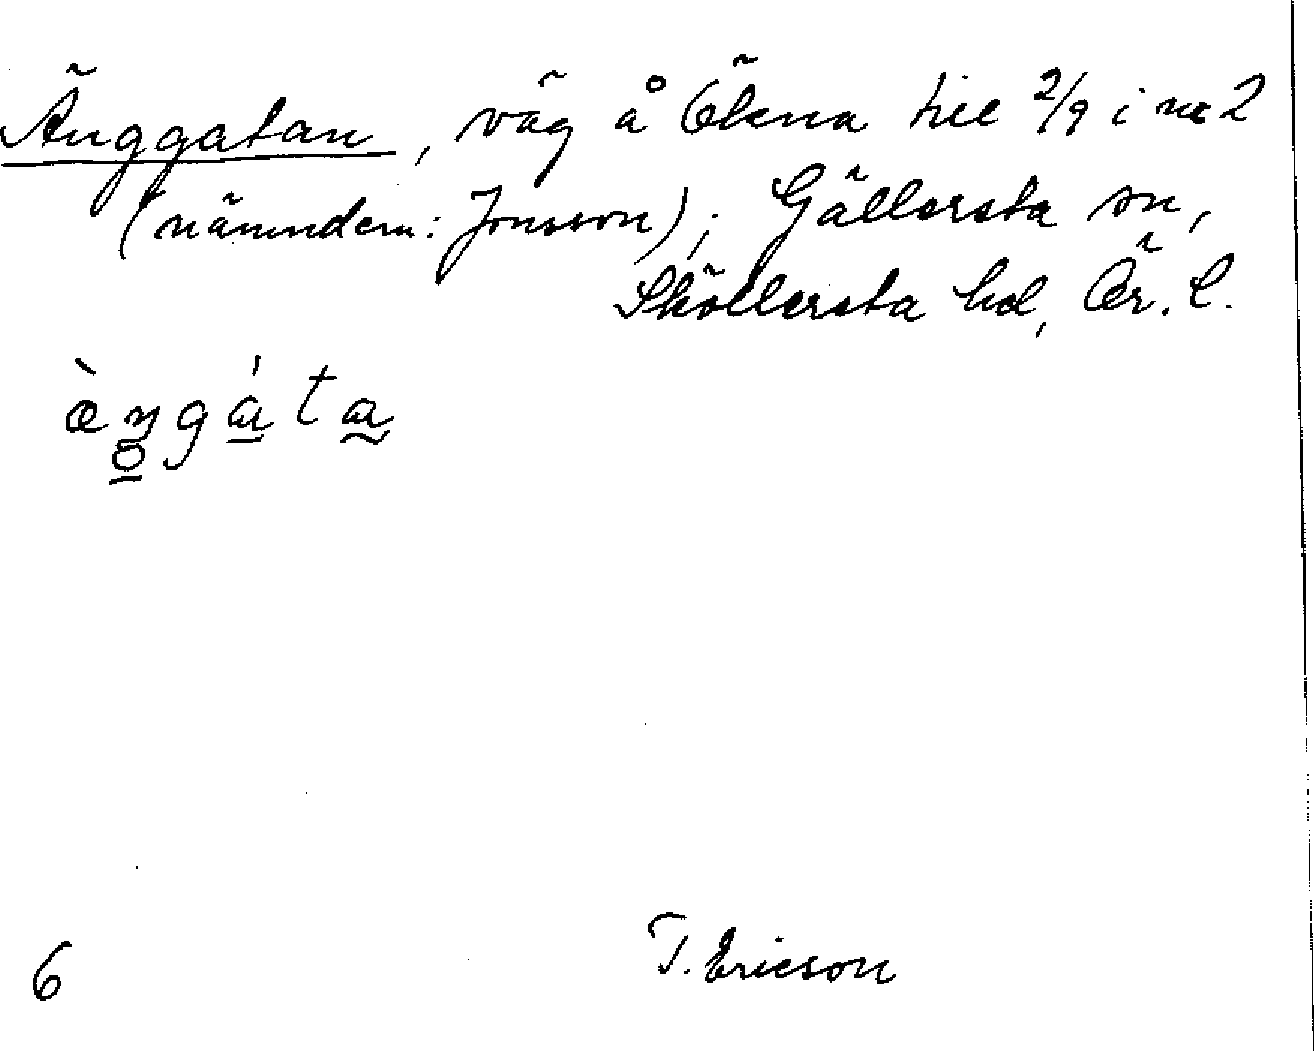 Änggatan, väg å Ökna till 2/9 i nr 2
(nämndem: Jonsson); Gällersta sn,
Sköllersta hd, Ör. L.
ängata
6
T. Ericson